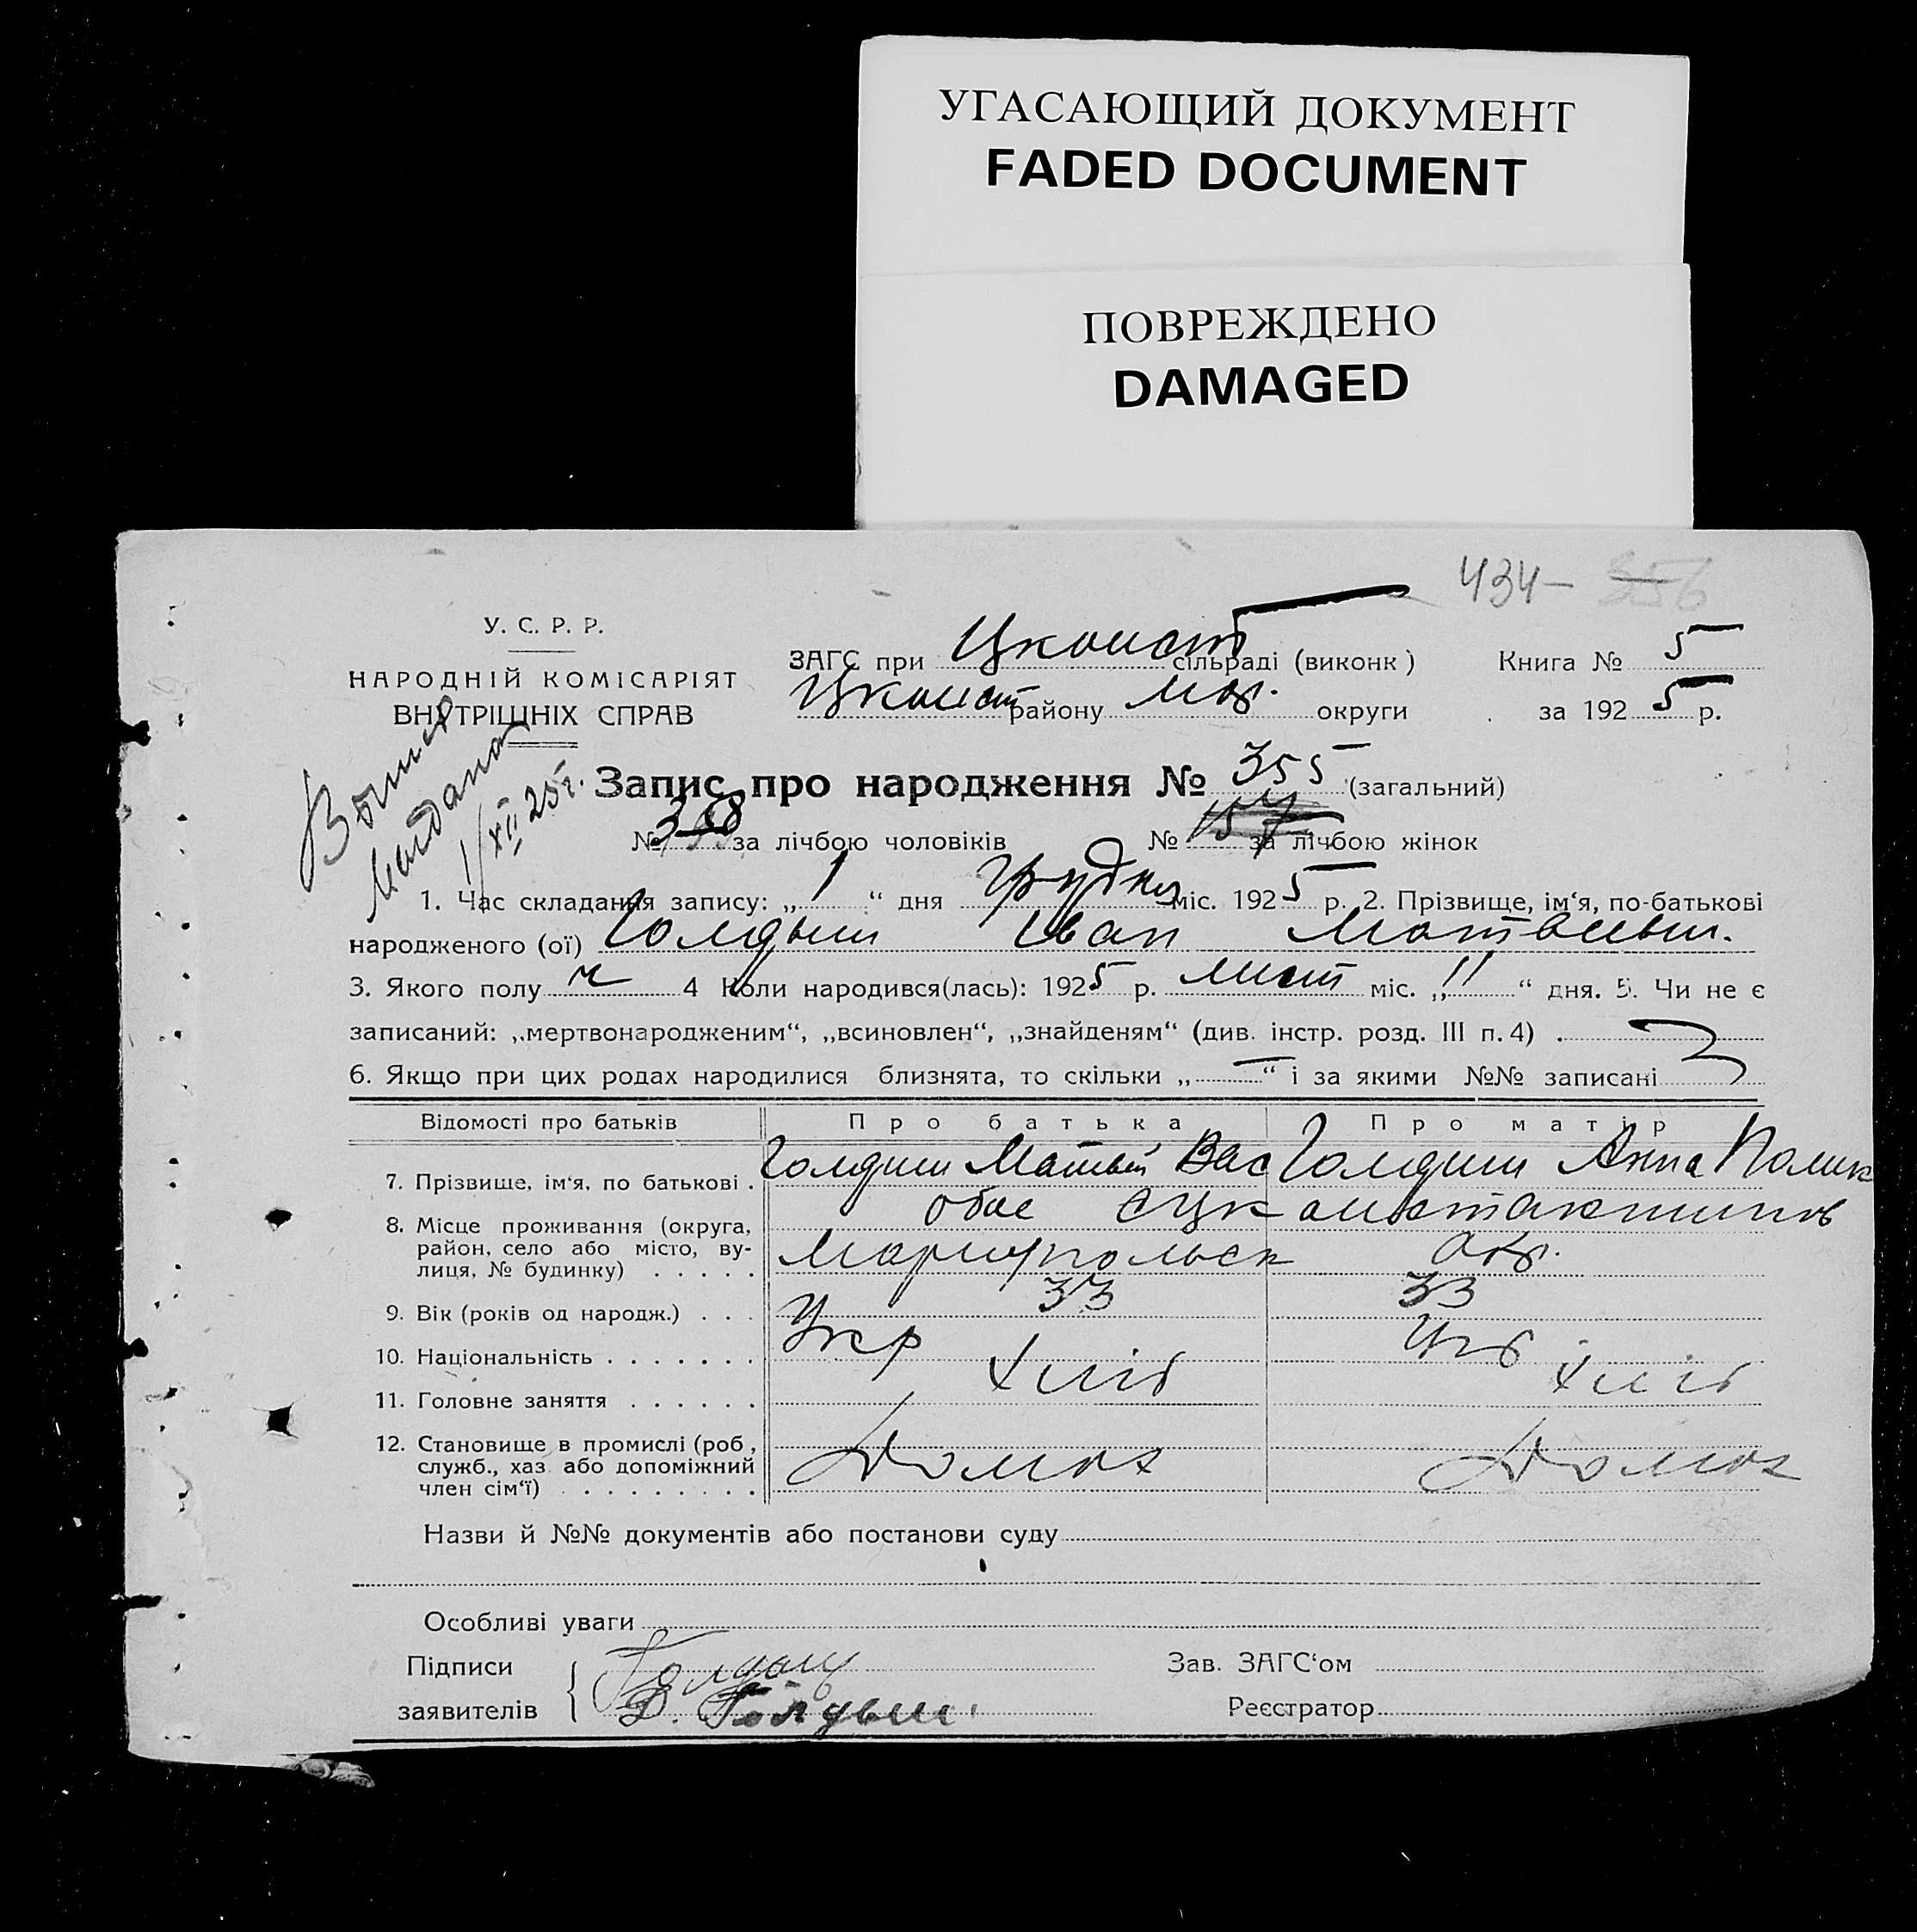 УГАСАЮЩИЙ ДОКУМЕНТ
FADED DOCUMENT
ПОВРЕЖДЕНО
DAMAGED
434 – 356
У. С. Р. Р.
НАРОДНІЙ КОМІСАРІЯТ
ВНУТРІШНІХ СПРАВ
ЗАГС при Цконст сільраді (виконк) Книга № 5
Цконст району Мар. округи за 1925 р.
1/XII 25 г.
Запис про народження № 355 (загальний)
№ за лічбою чоловіків № 157 за лічбою жінок
1. Час складання запису: „1“ дня Грудня міс. 1925 р. 2. Прізвище, ім‘я, по-батькові
народженого (ої) Голдыш Іван
3. Якого полу ч 4 Коли народився(лась): 1925 р. лист міс. „11“ дня. 5. Чи не є
записаний: „мертвонародженим“, „всиновлен“, „знайденям“ (див. інстр. розд. III п. 4) .
6. Якщо при цих родах народилися близнята, то скільки „—“ і за якими №№ записані
Відомості про батьків Про батька Про матір
7. Прізвище, ім‘я, по батькові . Голдиш Матвій Вас Голдиш Анна
8. Місце проживання (округа, район, село або місто, вулиця, № будинку) . . . . . обоє Мариупольск окр.
9. Вік (років од народж.) . . . 33 33
10. Національність . . . . . . . Укр Укр
11. Головне заняття . . . . . . Хліб Хліб
12. Становище в промислі (роб, служб., хаз. або допоміжний член сім‘ї) . . . . . . . . . Домох Домох
Назви й №№ документів або постанови суду
Особливі уваги
Підписи Голдыш Зав. ЗАГС‘ом
заявителів Д. Голдыш Реєстратор